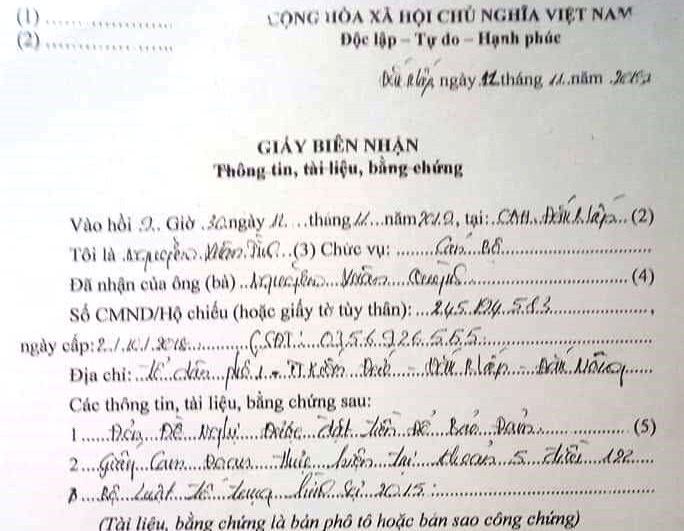 (1) ........................ CỘNG HÒA XÃ HỘI CHỦ NGHĨA VIỆT NAM
(2) ........................ Độc lập – Tự do – Hạnh phúc
Đắk R'lấp, ngày 12 tháng 11 năm
GIẤY BIÊN NHẬN
Thông tin, tài liệu, bằng chứng
Vào hồi 9.. Giờ 30 ngày 12 ...tháng 11...năm 2019, tại: CAH Đắk R'lấp.. (2)
Tôi là Nguyễn ... (3) Chức vụ: ........ Cán Bộ ........
Đã nhận của ông (bà) ..Nguyễn Xuân ........ (4)
Số CMND/Hộ chiếu (hoặc giấy tờ tùy thân): ...245.194.583 ........,
ngày cấp: ........ (SĐT: 0356.926.565 ........
Địa chỉ: ..Tổ dân phố 1 - TT.Kiến Đức - Đắk R'lấp - Đắk Nông ......
Các thông tin, tài liệu, bằng chứng sau:
1 ..... Đơn Đề Nghị Được đặt tiền Để Bảo Đảm ........ (5)
2 ... Giấy Cam Đoan thực hiện tại khoản 5 điều 122
Bộ Luật tố tụng hình sự 2015 ........
(Tài liệu, bằng chứng là bản phô tô hoặc bản sao công chứng)